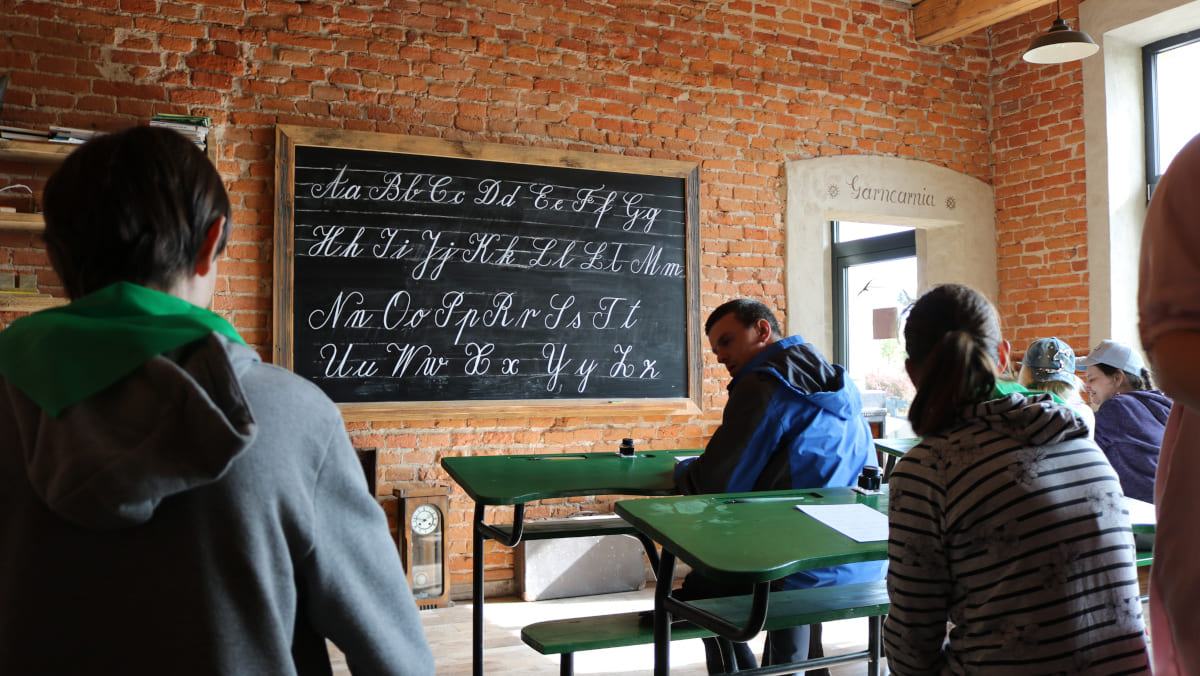 Aa Bb Cc Dd Ee Ff Gg
Hh Ii Jj Kk Ll Łł Mm
Nn Oo Pp Rr Ss Tt
Uu Ww Xx Yy Zz
Garncarnia